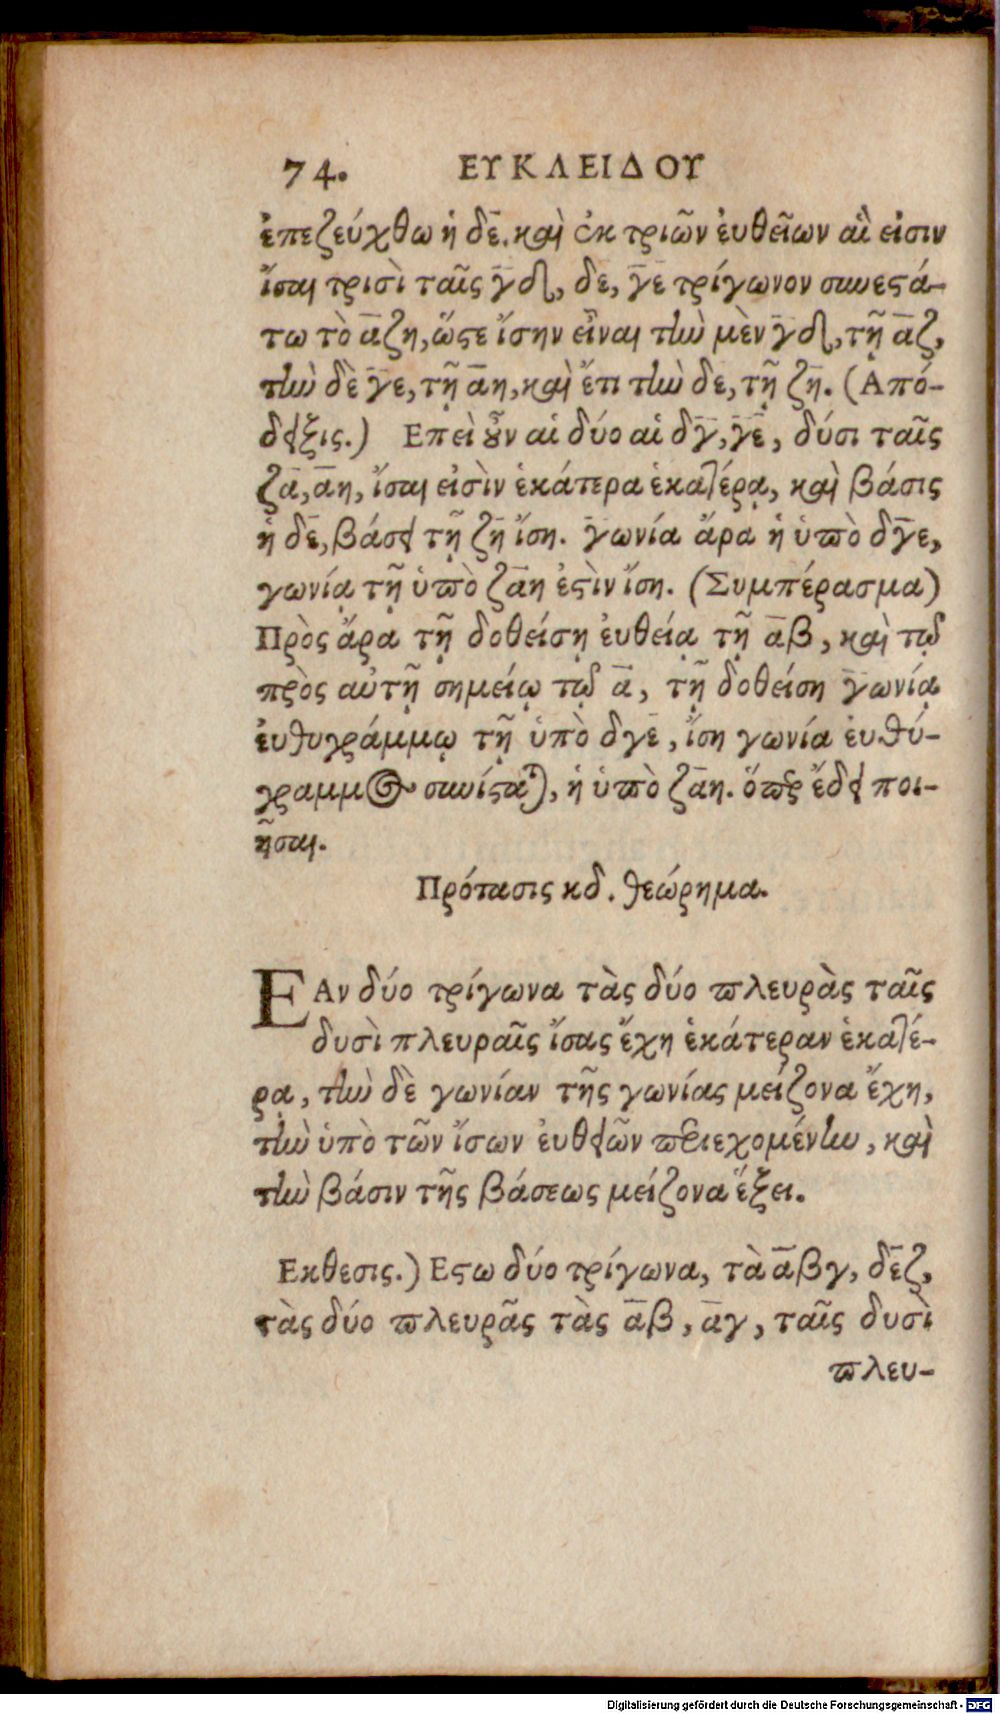 74. ΕΥΚΛΕΙΔΟΥ
ἐπεζεύχθω ἡ δε̄. καὶ ἐκ τριῶν ἐυθεῖων αἵ εἰσιν
ἴσαι τρισὶ ταῖς γ̄δ, δε, γ̄ε τρίγωνον συνεστά-
τω τὸ ᾱζη, ὥστε ἴσην εἶναι τὴν μὲν γ̄δ, τῇ ᾱζ,
τὴν δὲ γ̄ε, τῇ ᾱη, καὶ ἔτι τὴν δε, τῇ ζη̄. (Από-
δειξις.) Επεὶ οὖν αἱ δύο αἱ δγ̄, γ̄ε̄, δύσι ταῖς
ζᾱ, ᾱη, ἴσαι εἰσὶν ἑκάτερα ἑκατέρᾳ, καὶ βάσις
ἡ δε̄, βάσει τῇ ζη̄ ἴση. γωνία ἄρα ἡ ὑπὸ δγ̄ε,
γωνίᾳ τῇ ὑπὸ ζᾱη ἐστὶν ἴση. (Συμπέρασμα)
Πρὸς ἄρα τῇ δοθείσῃ ἐυθείᾳ τῇ ᾱβ, καὶ τῷ
πρὸς αὐτῇ σημείῳ τῷ ᾱ, τῇ δοθείση γωνίᾳ
ἐυθυγράμμῳ τῇ ὑπὸ δγε̄, ἴση γωνία ἐυθύ-
γραμμος συνίσταται, ἡ ὑπὸ ζᾱη. ὅπερ ἔδει ποι-
ῆσαι.
Πρότασις κδ. θεώρημα.
ΕΑν δύο τρίγωνα τὰς δύο πλευρὰς ταῖς
δυσὶ πλευραῖς ἴσας ἔχη ἑκάτεραν ἑκατέ-
ρᾳ, τὴν δὲ γωνίαν τῆς γωνίας μείζονα ἔχη,
τὴν ὑπὸ τῶν ἴσων ἐυθειῶν περιεχομένην, καὶ
τὴν βάσιν τῆς βάσεως μείζονα ἕξει.
Εκθεσις.) Εστω δύο τρίγωνα, τὰ ᾱβγ, δε̄ζ,
τὰς δύο πλευρᾶς τὰς ᾱβ, ᾱγ, ταῖς δυσὶ
πλευ-
Digitalisierung gefördert durch die Deutsche Forschungsgemeinschaft - DFG